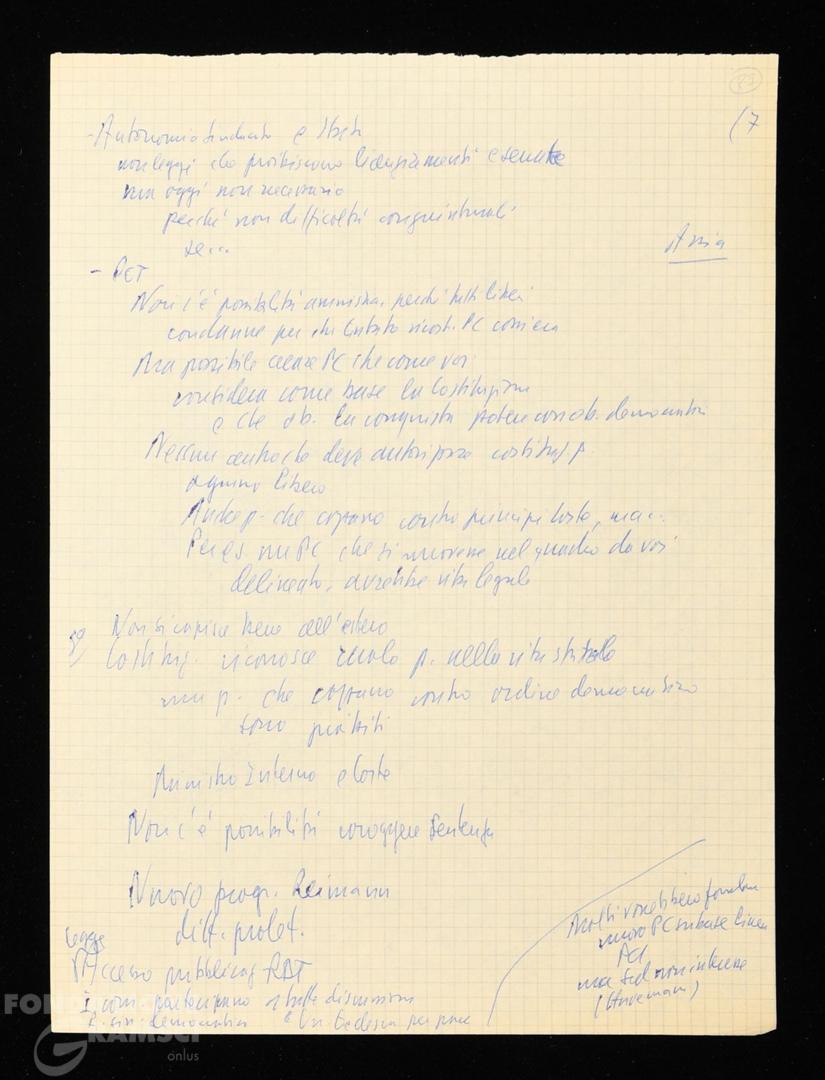 (7
- Autonomia sindacato e Stato
non leggi che proibiscono licenziamenti e serrate
ma oggi non necessario
perché non difficoltà congiunturali
se...
Asia
- RFT
Non c'è possibilità amnistia, perché tutti liberi
condanne per chi tentato ricost. PC
Ma possibile creare PC che come voi
considera come base la Costituzione
e che ob. la conquista potere con ob. democratici
Nessun deve autorizzare costituz. p.
ognuno libero
Anche p. che contro principi Costo, ma...
Per es. un PC che si muovesse nel quadro da voi
delineato, avrebbe vita legale
Non si capisce bene all'estero
Costituz. riconosce ruolo p. nella vita statale
ma p. che contro ordine democratico
sono proibiti
Ministro Interno e Corte
Non c'è possibilità correggere sentenza
Nuovo progr. Reimann
ditt. prolet.
Legge
Accesso pubblicaz. RDT
I com. partecipano a tutte discussioni
democratica e Un. tedesca per pace
Molti vorrebbero formare
nuovo PC su base linea
ma Sed non intende